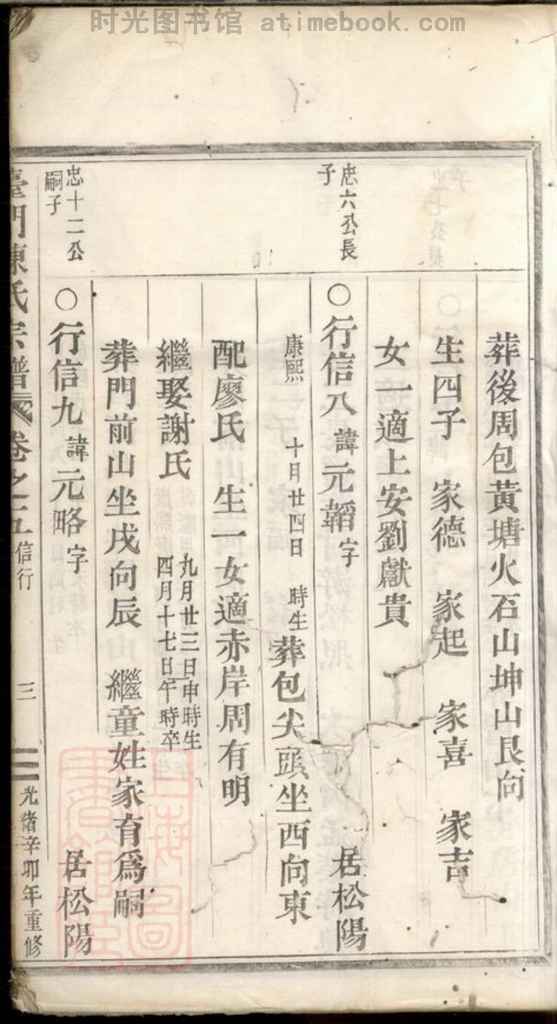 时光图书馆 atimebook.com
葬後周包黃塘火石山坤山艮向
生四子 家德 家起 家喜 家吉
女一適上安劉獻貴
忠六公長子
○行信八諱元韜字 居松陽
康熙 十月廿四日 時生葬包尖頭坐西向東
配廖氏 生一女適赤岸周有明
繼娶謝氏 九月廿三日申時生 四月十七日午時卒
葬門前山坐戌向辰 繼童姓家育爲嗣
忠十二公嗣子
○行信九諱元略字 居松陽
臺門陳氏宗譜 卷之五 信行 三 光緒辛卯年重修